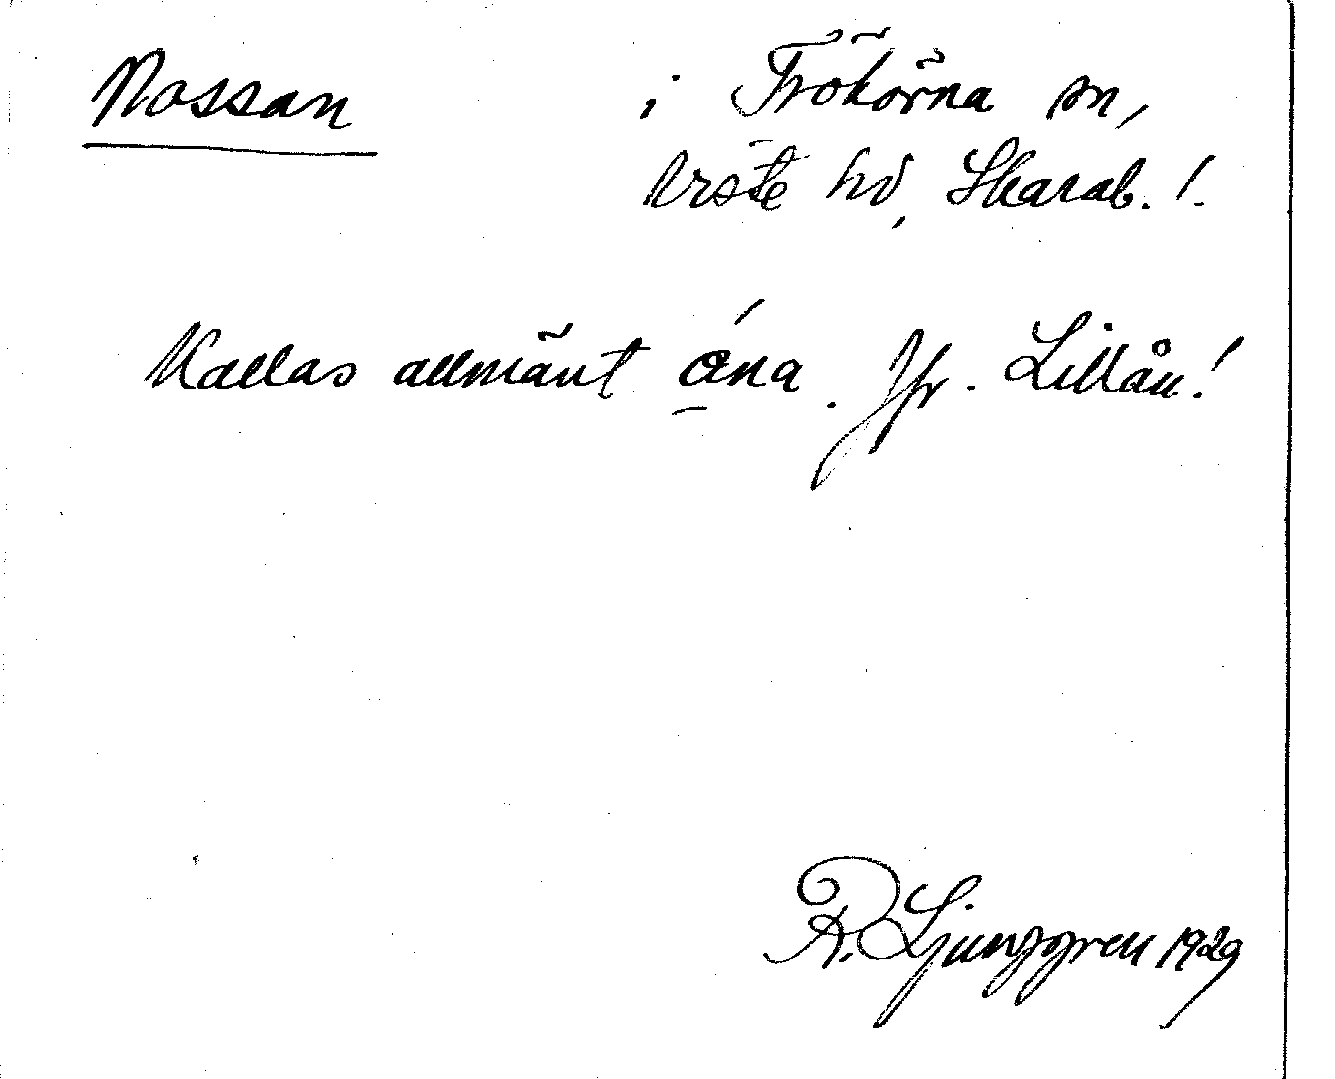 Nossan i Trökörna sn,
Viste hd, Skarab. !
Kallas allmänt ána. Jfr. Lillån!
R. Ljunggren 1929